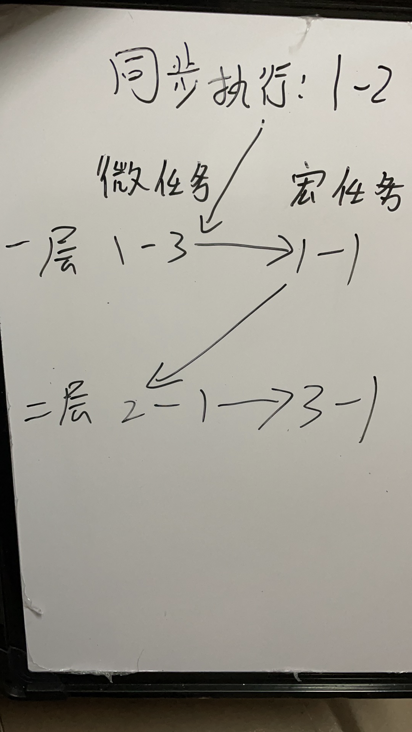 同步执行: 1-2
微任务 宏任务
一层 1-3 → 1-1
二层 2-1 → 3-1